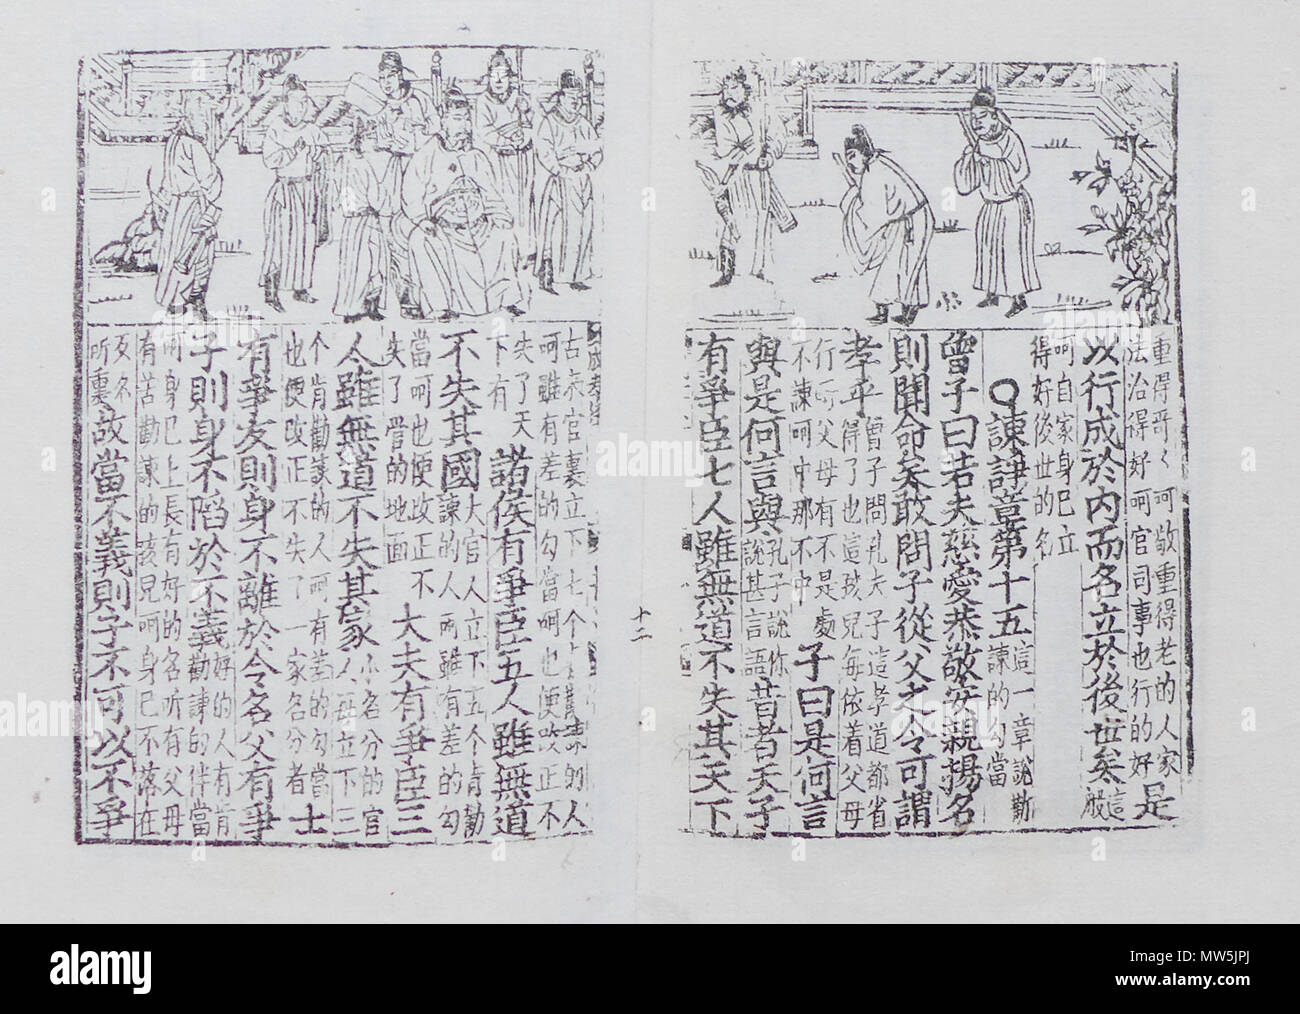 重得哥々呵敬重得老的人家是
法治得好呵官司事也行的好
以行成於內而名立於後世矣這般
呵自家身已立
得好後世的名
諫諍章第十五這一章說勸諫的勾當
曾子曰若夫慈愛恭敬安親揚名
則聞命矣敢問子從父之令可謂
孝乎曾子問孔夫子這孝道都省得了也這孩兒每依着父母
行呵父母有不是處不諫呵中那不中子曰是何言
與是何言與孔子說你說甚言語昔者天子
有爭臣七人雖無道不失其天下
十二
古來官裏立下七个
呵雖有差的勾當呵也便改正不
失了天下有諸侯有爭臣五人雖無道
不失其國大官人立下五个肯勸諫的人呵雖有差的勾
當呵也便改正不失了管的地面大夫有爭臣三
人雖無道不失其家
个肯勸諫的人呵有差的勾當也便改正不失了一家名分者士
有爭友則身不離於令名父有爭
子則身不陷於不義
呵身已上長有好的名听有父母
有苦勸諫的孩兒呵身已不落在
歹名听裏故當不義則子不可以不爭
alamy
Image ID: MW5JPJ
www.alamy.com